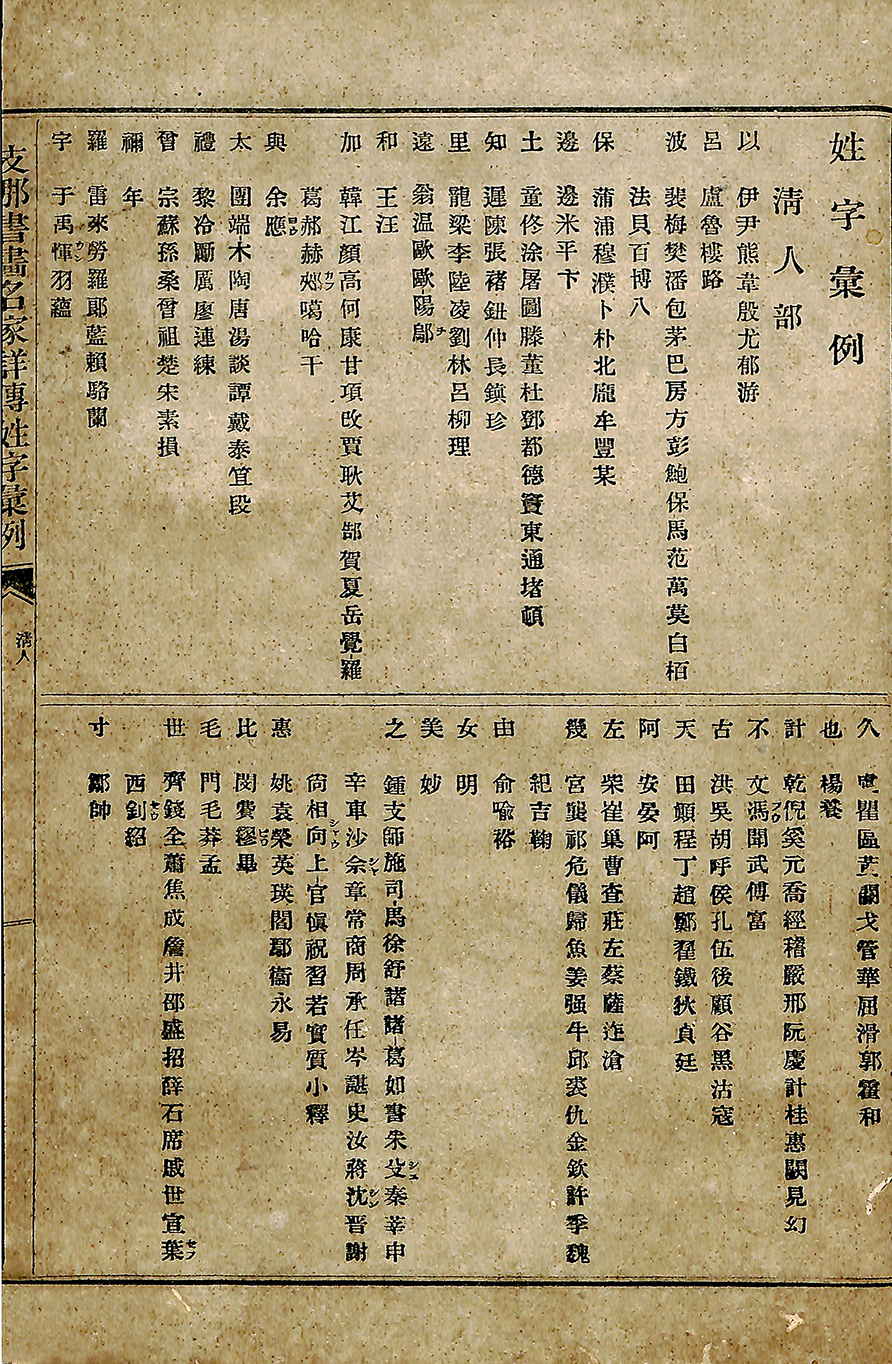 姓字彙例
淸人部
以 伊尹熊韋殷尤郁游
呂 盧魯樓路
波 裴梅樊潘包茅巴房方彭鮑保馬范萬莫白栢
法貝百博八
保 蒲浦穆濮卜朴北龐牟豐某
邊 邊米平卞
土 童佟涂屠圖滕董杜鄧都德竇東通堵頓
知 遲陳張褚鈕仲長鎭珍
里 龍梁李陸凌劉林呂柳理
遠 翁温歐歐陽鄔
和 王汪
加 韓江顔高何康甘項改賈耿艾郜賀夏岳覺羅
葛郝赫郟噶哈干
與 余應
太 團端木陶唐湯談譚戴泰笪段
禮 黎冷勵厲廖連練
曾 宗蘇孫桑曾祖楚宋素損
禰 年
羅 雷來勞羅郎藍賴駱蘭
字 于禹惲羽蘊
支那書畫名家詳傳姓字彙例
淸人
久 瞿區黃關戈管華屈滑郭霍和
也 楊養
計 乾倪奚元喬經稽嚴邢阮慶計桂惠闕見幻
不 文馮聞武傅富
古 洪吳胡呼侯孔伍後顧谷黑沽寇
天 田顚程丁趙鄭翟鐵狄貞廷
阿 安晏阿
左 柴崔巢曹查莊左蔡薩迮滄
幾 宮龔祁危儀歸魚姜强牛邱裘仇金欽許季魏
紀吉鞠
由 俞喩裕
女 明
美 妙
之 鍾支師施司馬徐舒諸諸葛如書朱殳秦莘申
辛車沙佘章常商周承任岑諶史汝蔣沈晋謝
尙相向上官愼祝習若實質小釋
惠 姚袁榮英瑛閻鄢衞永易
比 閔費繆畢
毛 門毛莽孟
世 齊錢全蕭焦成詹井邵盛招薛石席戚世宣葉
西釗紹
寸 鄒帥